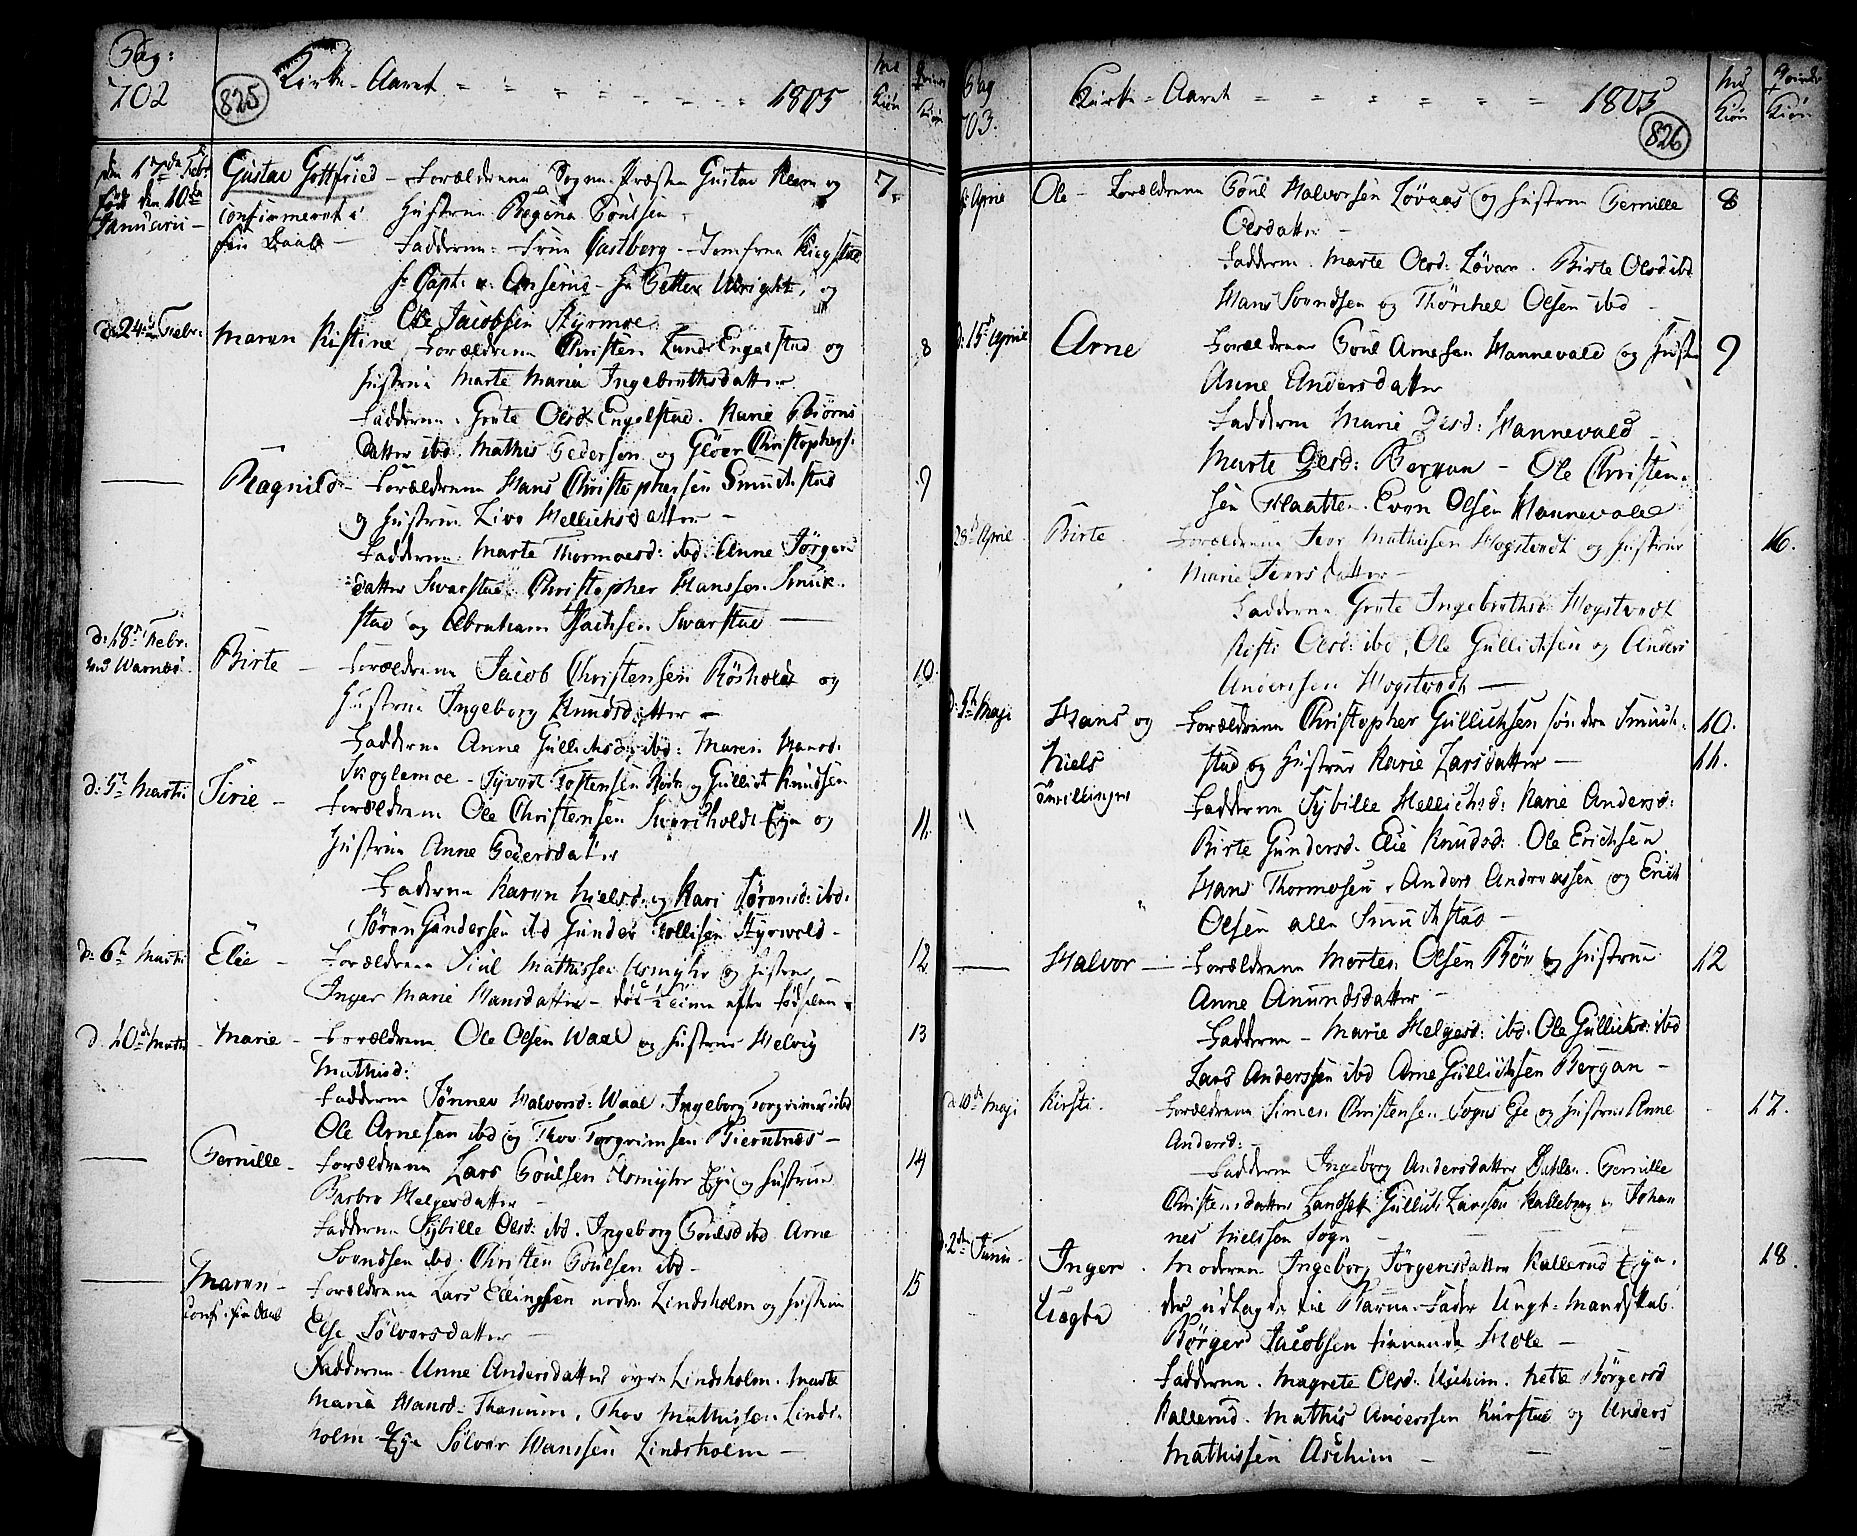 Pag:
702
825
Kirke-Aaret 1805
Mk Kiøn
Qvinde Kiøn
den 17de Febr. Gustav Gottfried - Forældrene Sogne Præsten Gustav og 7
født den 10de confirmeret i Hustrue Regina Poulsen
Januarii - sin Daab - Fadderne: Frue Castberg - Jomfrue
Hr Capt: v: - Hr Petter og
Ole Jacobsen Styrmoe
d: 24de Febr: Maren Kistine Forældrene Christen Lund Engelstad og 8
Hustrue Marte Maria Ingebrethsdatter
Fadderne. Grete Olsd: Engelstad. Karie Biørns
datter ibd. Mathis Pedersen og Gløer Christophers:
— Ragnild - Forældrene Hans Christophersen Smuchstad 9
og Hustrue Live Hellichsdatter -
Fadderne. Marte Thormoesd: ibd: Anne Jørgens
datter Swarstad. Christopher Hanssen Smuk-
stad og Abraham Isachsen Swarstad
d: 18de Febr.
ved Warnæs. Birte - Forældrene Jacob Christensen Røsholdt og 10
Hustrue Ingeborg Knudsdatter -
Fadderne Anne Gullichsd: ibd: Maren Hansd:
Skoglemoe - Syvert Tostensen og Gullich Knudsen
d: 5te Martii Sirie - Forældrene Ole Christensen Swartholdt Eye og 11.
Hustrue Anne Pedersdatter
Fadderne Karen Nielsd: og Kari Sørensd: ibd:
Søren Gundersen ibd Gunder Tollefsen Styrvold -
d: 6te Martii Elie - Forældrene Siul Mathissen Asmyhr og Hustrue 12
Inger Marie Hansdatter - død ½ time efter fødselen
d. 10de Martii - Marie - Forældrene Ole Olsen Waal og Hustrue Helvig 13
Mathisd:
Fadderne Tønnev Halvorsd: Waal. Ingeborg Torgrimsd ibd
Ole Arnesen ibd og Thov Torgrimsen Biernnæs -
— Pernille - Forældrene Lars Poulsen Asmyhr Eye og Hustrue 14
Barbro Helgesdatter -
Fadderne Sybille Olsd: ibd. Ingeborg Poulsd ibd Arne
Svendsen ibd. Christen Poulsen ibd -
— Maren - Forældrene Lars Ellingsen nedre Lindsholm og Hustrue 15
conf. sin daab Else Sølversdatter -
Fadderne. Anne Andersdatter øvre Lindsholm. Marte
Maria Hansd: Thanum, Thov Mathissen Linds-
holm Eye Sølver Hanssen Lindsholm -
Pag
703.
Kirke-Aaret 1805
826
Mk Kiøn
Qvinde Kiøn
April Ole - Forældrene Poul Halvorsen Løvaas og Hustrue Pernille 8
Olsdatter -
Fadderne. Marte Olsd: Løvaas. Birte Olsd ibd
Hans Svendsen og Thorchel Olsen ibd -
d: 15de April Arne Forældrene Poul Arnesen Hannevald og Hustrue 9
Anne Andersdatter
Fadderne Marie Olsd: Hannevald
Marte Olsd: Bergan - Ole Christen-
sen Flaatten. Even Olsen Hannevald
28de April Birte Forældrene Iver Mathissen Hogstvedt og Hustrue 16.
Marie Iversdatter -
Fadderne Grete Ingebrethsd: Hogstvedt
Kisti Olsd: ibd, Ole Gullichsen og Anders
Andersen Hogstvedt -
d: 5te Maji Hans og Forældrene Christopher Gullichsen søndre Smuch- 10.
Niels stad og Hustrue Karie Larsdatter - 11.
Tvillinger Fadderne Sybille Hellichsd: Karie Andersd:
Birte Gundersd. Elie Knudsd: Ole Erichsen
Hans Thormosen, Anders Andreassen og Erich
Olsen alle Smuchstad -
— Halvor - Forældrene Morten Olsen Bøv og Hustrue 12
Anne Anundsdatter -
Fadderne - Marie Helgesd: ibd. Ole Gullichs: ibd
Lars Anderssen ibd Arne Gullichsen Bergan -
d. 10de Maji Kirsti. Forældrene Simen Christensen Sogns Eje og Hustrue Anne 17.
Andersd: -
Fadderne Ingeborg Andersdatter Dahlen. Pernille
Christensdatter Gullich Larssen Kalleberg og Johan
nes Nielssen Sogn -
d. 2den Junii - Inger. Moderen Ingeborg Jørgensdatter Kallerud Eye. 18.
Uægte der udlagde til Barne-Fader Ungt-Mandskab
Børger Jacobsen tienende Hole -
Fadderne. Magrete Olsd: Aschim. Nette Børgersd
Kallerud. Mathis Anderssen Kirstad og Anders
Mathissen Aschim -